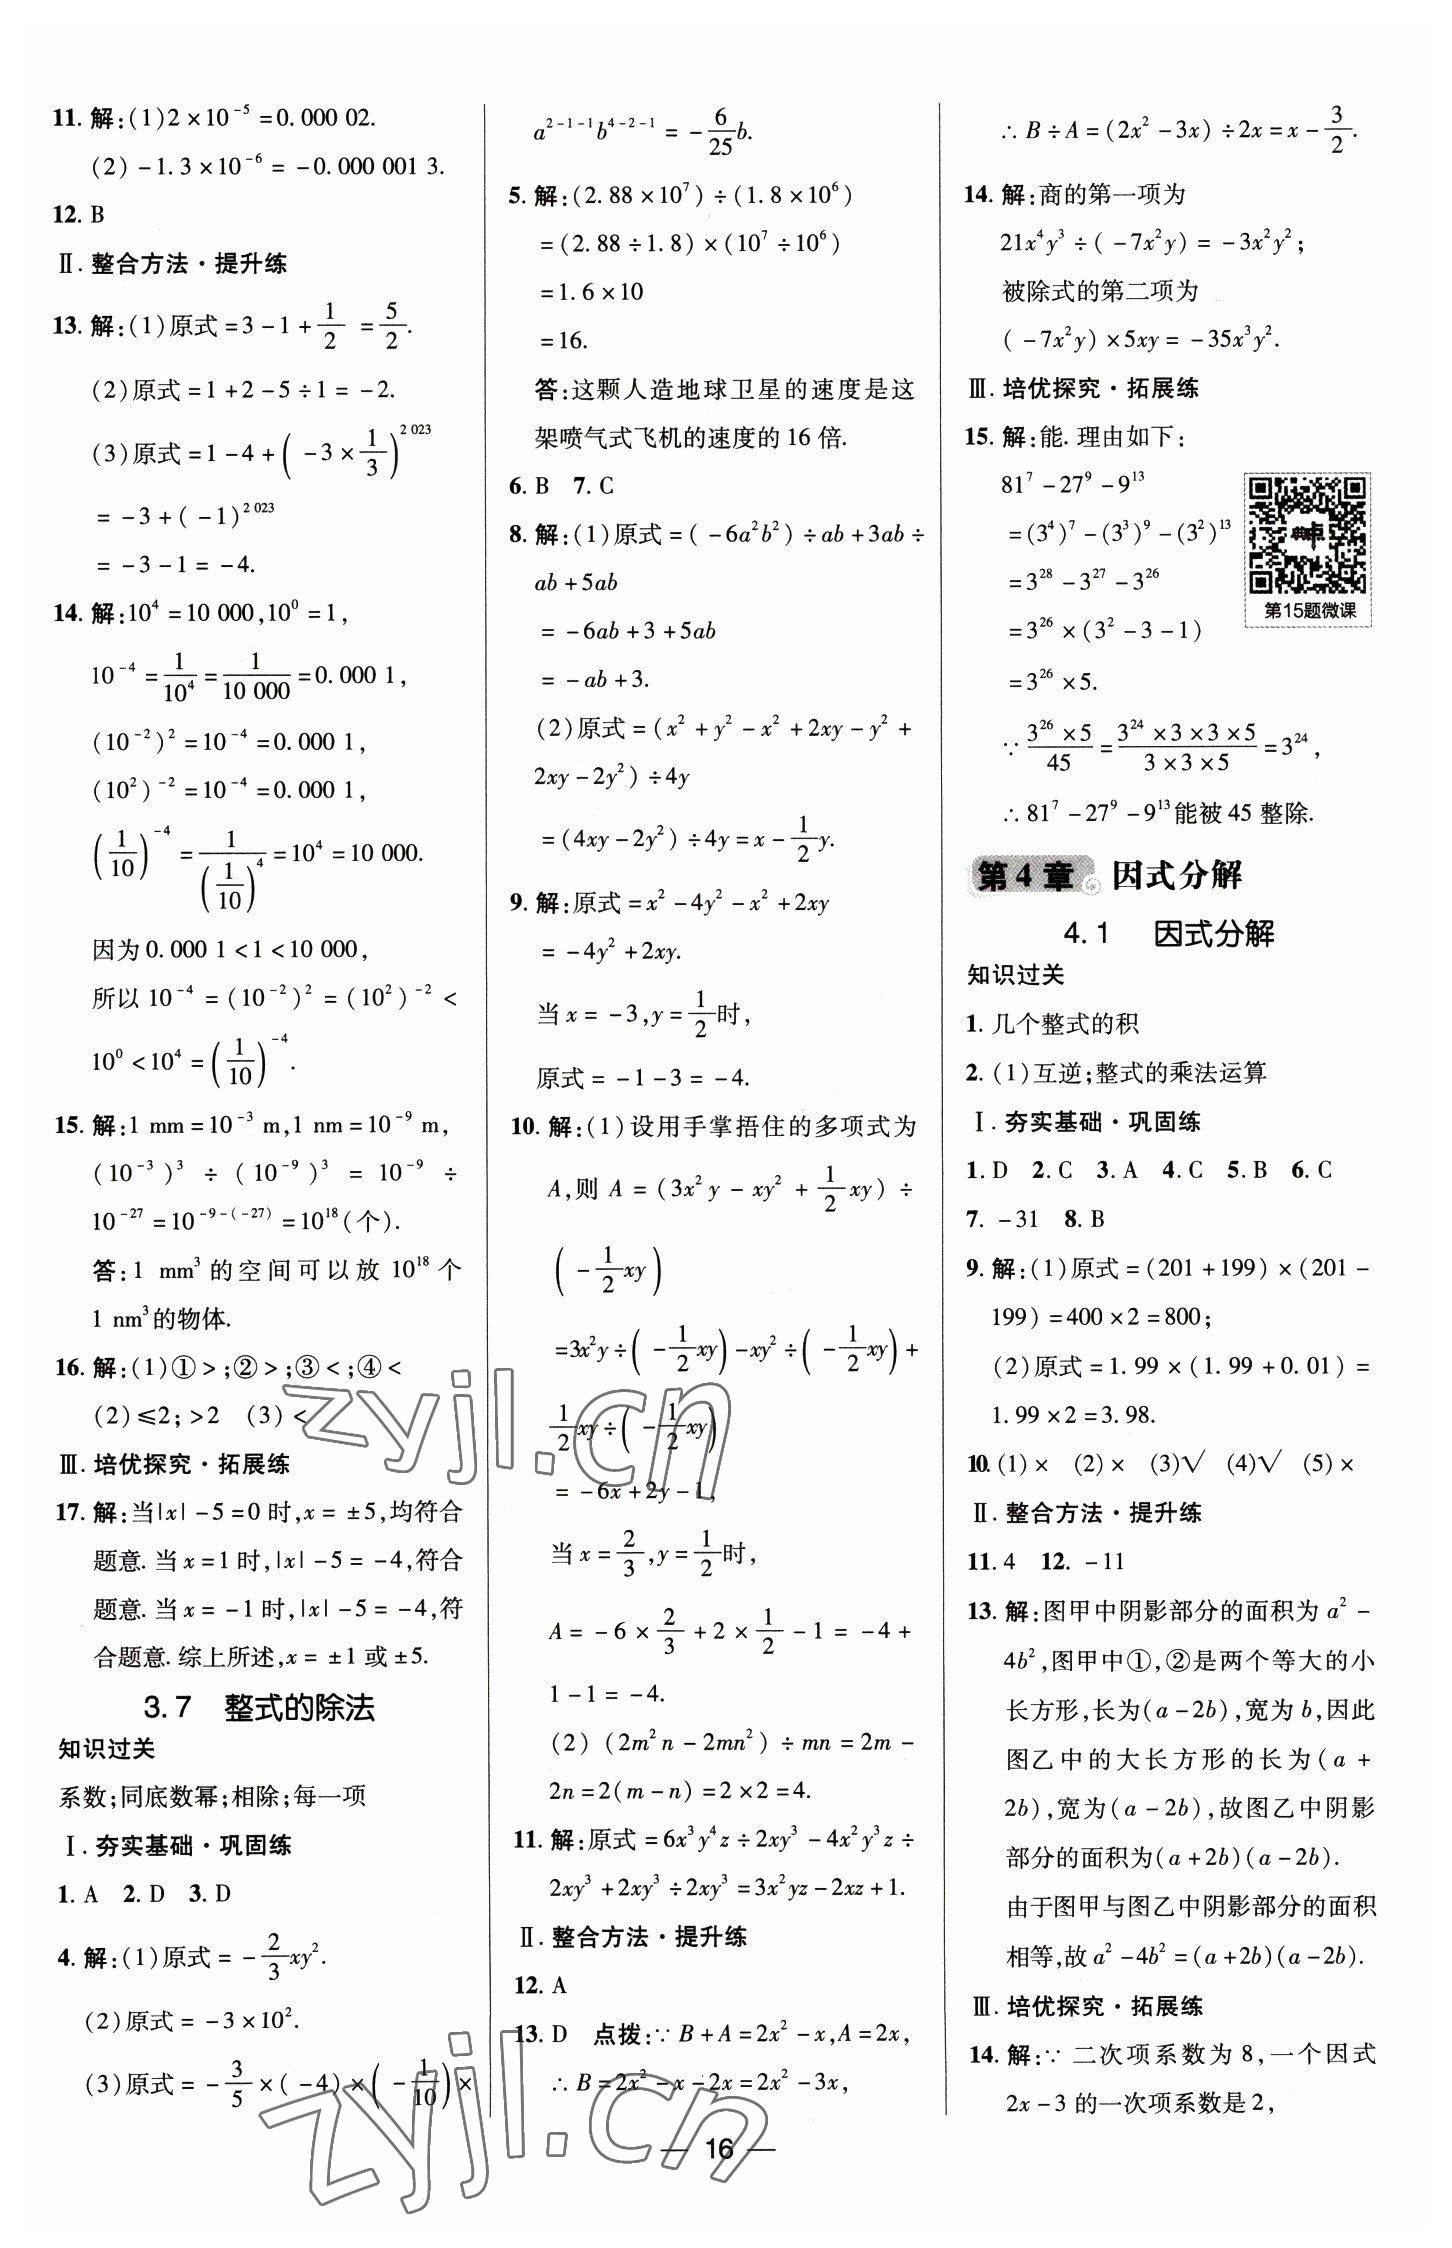 11. 解:(1)2×10⁻⁵=0.000 02.
(2)-1.3×10⁻⁶=-0.000 001 3.
12. B
Ⅱ. 整合方法·提升练
13. 解:(1)原式=3-1+1/2=5/2.
(2)原式=1+2-5÷1=-2.
(3)原式=1-4+(-3×1/3)²⁰²³
=-3+(-1)²⁰²³
=-3-1=-4.
14. 解:10⁴=10 000,10⁰=1,
10⁻⁴=1/10⁴=1/10 000=0.000 1,
(10⁻²)²=10⁻⁴=0.000 1,
(10²)⁻²=10⁻⁴=0.000 1,
(1/10)⁻⁴=1/(1/10)⁴=10⁴=10 000.
因为0.000 1<1<10 000,
所以10⁻⁴=(10⁻²)²=(10²)⁻²<
10⁰<10⁴=(1/10)⁻⁴.
15. 解:1 mm=10⁻³ m,1 nm=10⁻⁹ m,
(10⁻³)³÷(10⁻⁹)³=10⁻⁹÷
10⁻²⁷=10⁻⁹⁻⁽⁻²⁷⁾=10¹⁸(个).
答:1 mm³的空间可以放10¹⁸个
1 nm³的物体.
16. 解:(1)①>;②>;③<;④<
(2)≤2;>2 (3)<
Ⅲ. 培优探究·拓展练
17. 解:当|x|-5=0时,x=±5,均符合
题意.当x=1时,|x|-5=-4,符合
题意.当x=-1时,|x|-5=-4,符
合题意.综上所述,x=±1或±5.
3.7 整式的除法
知识过关
系数;同底数幂;相除;每一项
Ⅰ. 夯实基础·巩固练
1. A 2. D 3. D
4. 解:(1)原式=-2/3xy².
(2)原式=-3×10².
(3)原式=-3/5×(-4)×(-1/10)×
a²⁻¹⁻¹b⁴⁻²⁻¹=-6/25b.
5. 解:(2.88×10⁷)÷(1.8×10⁶)
=(2.88÷1.8)×(10⁷÷10⁶)
=1.6×10
=16.
答:这颗人造地球卫星的速度是这
架喷气式飞机的速度的16倍.
6. B 7. C
8. 解:(1)原式=(-6a²b²)÷ab+3ab÷
ab+5ab
=-6ab+3+5ab
=-ab+3.
(2)原式=(x²+y²-x²+2xy-y²+
2xy-2y²)÷4y
=(4xy-2y²)÷4y=x-1/2y.
9. 解:原式=x²-4y²-x²+2xy
=-4y²+2xy.
当x=-3,y=1/2时,
原式=-1-3=-4.
10. 解:(1)设用手掌捂住的多项式为
A,则A=(3x²y-xy²+1/2xy)÷
(-1/2xy)
=3x²y÷(-1/2xy)-xy²÷(-1/2xy)+
1/2xy÷(-1/2xy)
=-6x+2y-1,
当x=2/3,y=1/2时,
A=-6×2/3+2×1/2-1=-4+
1-1=-4.
(2)(2m²n-2mn²)÷mn=2m-
2n=2(m-n)=2×2=4.
11. 解:原式=6x³y⁴z÷2xy³-4x²y³z÷
2xy³+2xy³÷2xy³=3x²yz-2xz+1.
Ⅱ. 整合方法·提升练
12. A
13. D 点拨:∵B+A=2x²-x,A=2x,
∴B=2x²-x-2x=2x²-3x,
∴B÷A=(2x²-3x)÷2x=x-3/2.
14. 解:商的第一项为
21x⁴y³÷(-7x²y)=-3x²y²;
被除式的第二项为
(-7x²y)×5xy=-35x³y².
Ⅲ. 培优探究·拓展练
15. 解:能.理由如下:
81⁷-27⁹-9¹³
=(3⁴)⁷-(3³)⁹-(3²)¹³
=3²⁸-3²⁷-3²⁶
=3²⁶×(3²-3-1)
=3²⁶×5.
第15题微课
∵3²⁶×5/45=3²⁴×3×3×5/3×3×5=3²⁴,
∴81⁷-27⁹-9¹³能被45整除.
第4章 因式分解
4.1 因式分解
知识过关
1. 几个整式的积
2. (1)互逆;整式的乘法运算
Ⅰ. 夯实基础·巩固练
1. D 2. C 3. A 4. C 5. B 6. C
7. -31 8. B
9. 解:(1)原式=(201+199)×(201-
199)=400×2=800;
(2)原式=1.99×(1.99+0.01)=
1.99×2=3.98.
10. (1)× (2)× (3)√ (4)√ (5)×
Ⅱ. 整合方法·提升练
11. 4 12. -11
13. 解:图甲中阴影部分的面积为a²-
4b²,图甲中①,②是两个等大的小
长方形,长为(a-2b),宽为b,因此
图乙中的大长方形的长为(a+
2b),宽为(a-2b),故图乙中阴影
部分的面积为(a+2b)(a-2b).
由于图甲与图乙中阴影部分的面积
相等,故a²-4b²=(a+2b)(a-2b).
Ⅲ. 培优探究·拓展练
14. 解:∵二次项系数为8,一个因式
2x-3的一次项系数是2,
— 16 —
zyjl.cn
zyjl.cn